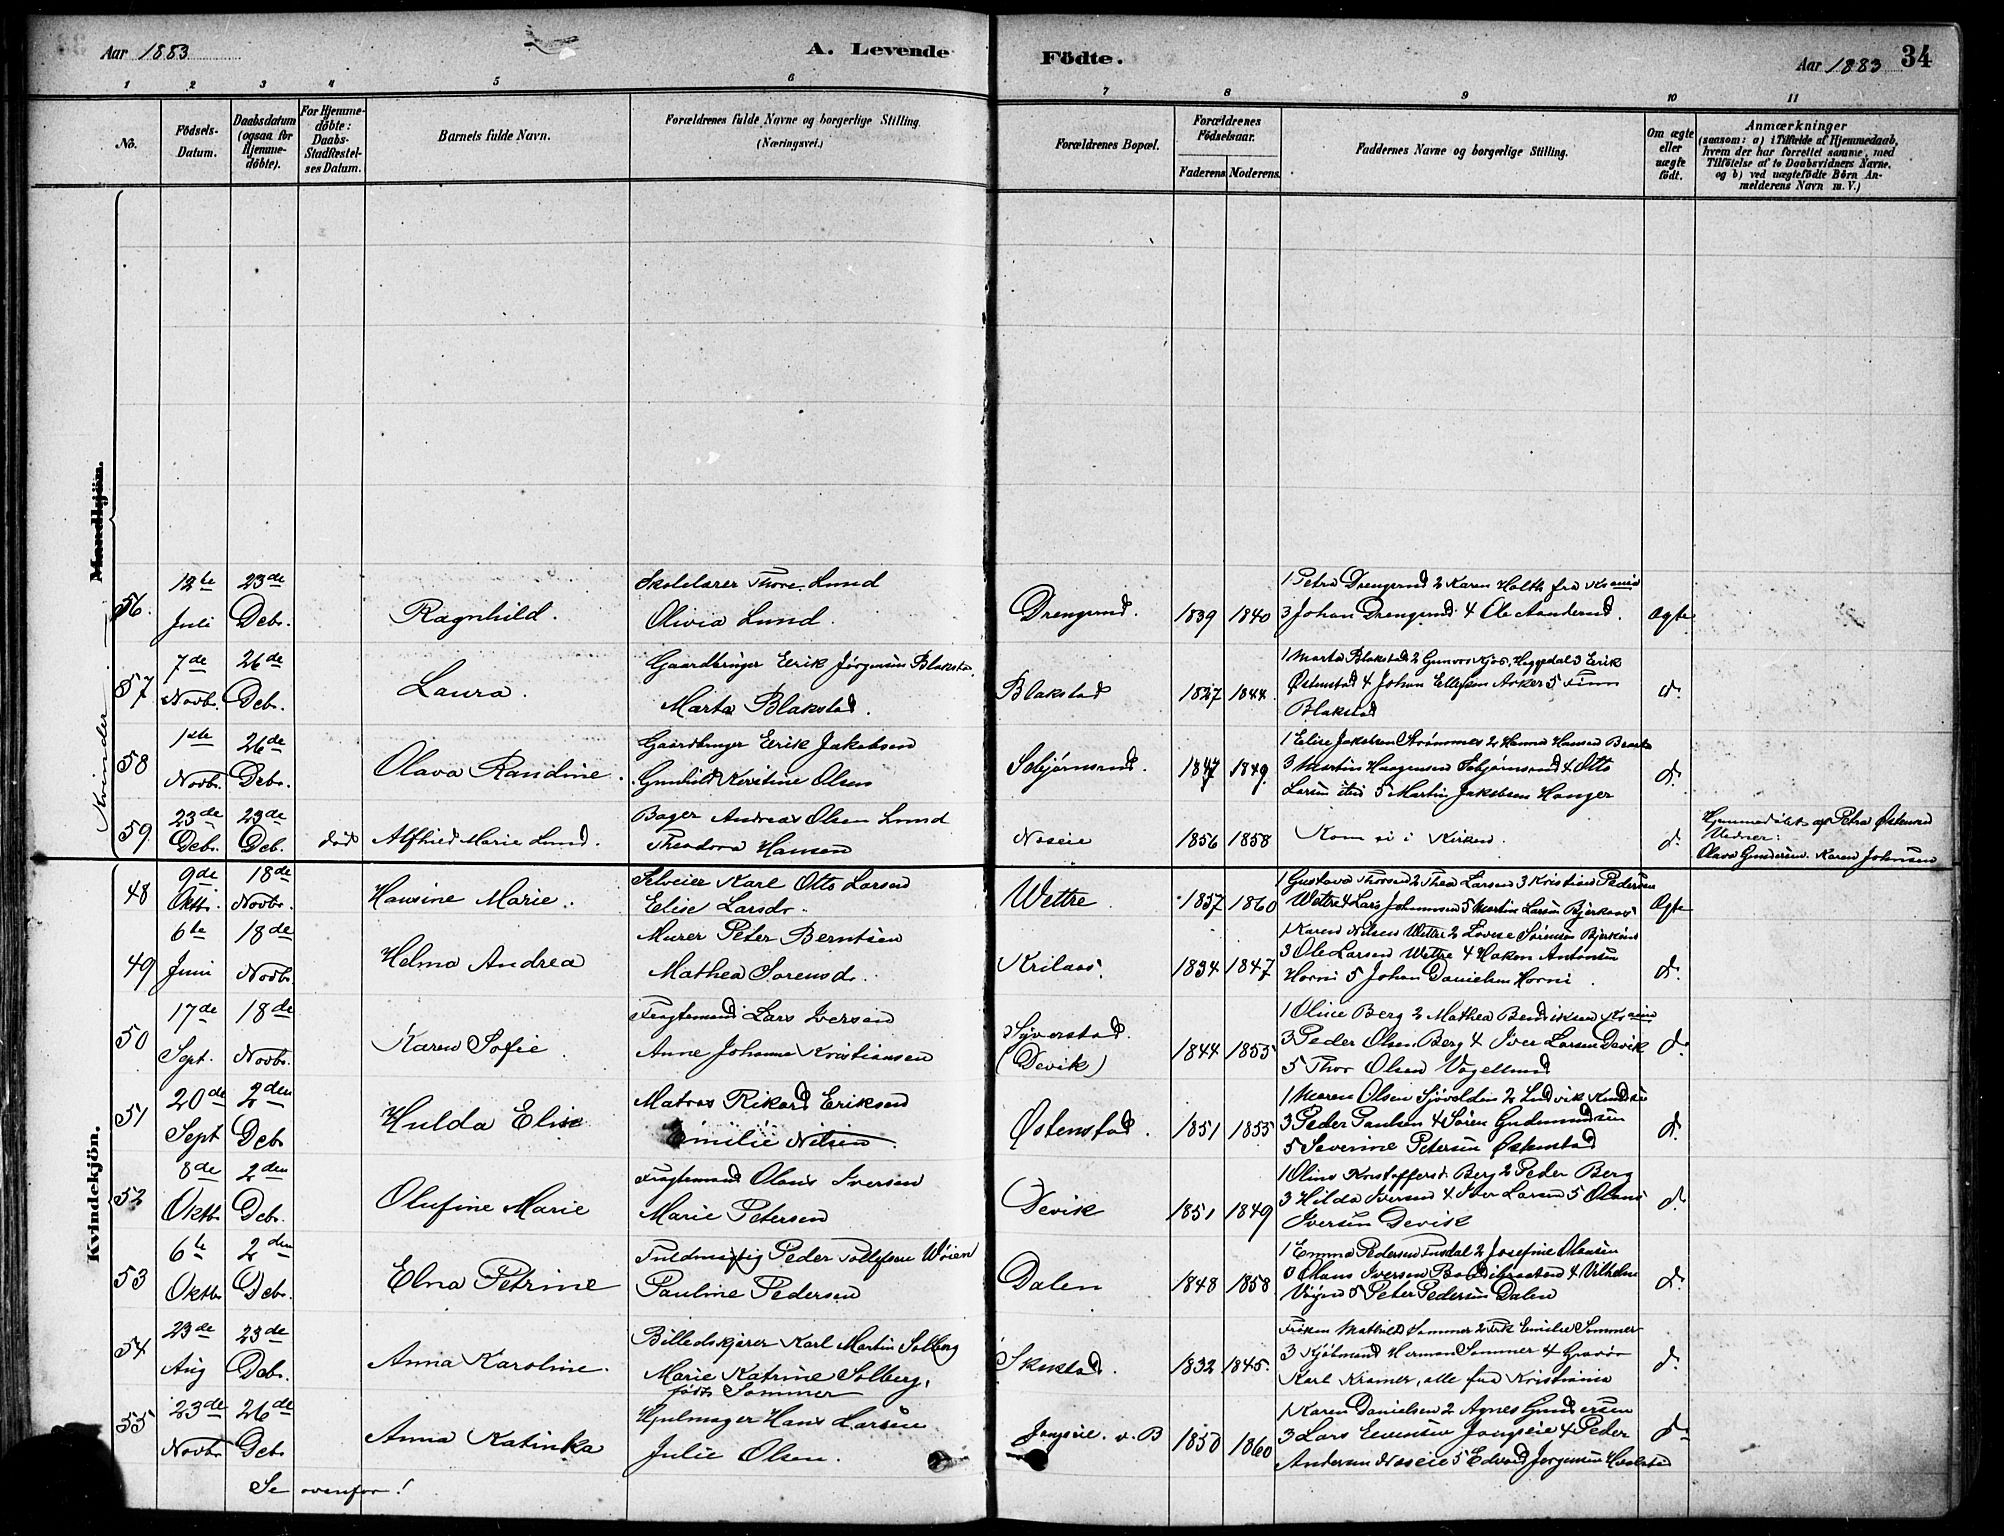 Aar 1883
A. Levende Födte.
Aar 1883
34
1 2 3 4 5 6 7 8 9 10 11
No.
Födsels-Datum.
Daabsdatum (ogsaa for Hjemme-döbte).
For Hjemme-döbte: Daabs-Stadfæstel-ses Datum.
Barnets fulde Navn.
Forældrenes fulde Navne og borgerlige Stilling.
(Næringsvei.)
Forældrenes Bopæl.
Forældrenes Födselsaar.
Faderens. Moderens.
Faddernes Navne og borgerlige Stilling.
Om ægte eller uægte födt.
Anmærkninger
(saasom: a) i Tilfælde af Hjemmedaab,
hvem der har forrettet samme, med
Tilföielse af to Daabsvidners Navne,
og b) ved uægtefödte Börn An-
melderens Navn m. V.)
Mandkjön.
Kvinder
56. 12te Juli 23de Debr. Ragnhild.
Skolelærer Thore Lund
Olivia Lund.
Drengsrud. 1839 1840
1 Petra Drengsrud 2 Karen Holth fra
3 Johan Drengsrud 4 Ole Aanderud.
Ægte
57 7de Novb. 26de Debr. Laura.
Gaardbruger Eerik Jørgensen Blakstad
Marta Blakstad.
Blakstad 1827 1844
1 Marta Blakstad 2 Gunvor Kjos, Heggedal 3 Erik
Østenstad 4 Johan Ellefsen Asker 5 Finn
Blakstad
d.
58 1ste Novb. 26de Debr. Olava Randine.
Gaardbruger Eerik Jakobsen
Gunhild Kerstine Olsen
1847 1849.
1 Elise Jakobsen 2 Hanna Hansen
3 Martin 4 Otto
Larsen 5 Martin Jakobsen
d.
59. 23de Debr. 23de Debr. död Alfhild Marie Lund.
Bager Andreas Olsen Lund
Theodora Hansen
Næseie 1856 1858 Kom ei i Kirken. d.
Hjemmedöbt af Petra Østensen
Vidner:
Olava Gundersen. Karen Johnsen
Kvindekjön.
48 9de Oktbr. 18de Novbr. Hansine Marie.
Selveier Karl Otto Larsen
Elise Larsdr.
Wettre 1857 1860
1 Gustava Thorsen 2 Thea Larsen 3 Kristian Pedersen
Wettre 4 Lars Johannesen 5 Martin Larsen Bjerkaas
Ægte
49 6te Juni 18de Novbr. Helma Andrea
Murer Peter Berntsen
Mathea Sorensd.
Krilaas. 1834 1847
1 Karen Nilsen Wettre 2 Lovise Sørensen Bjerkaas
3 Ole Larsen Wettre 4 Hakon Antonsen
Horni 5 Johan Danielsen Horni.
d.
50 17de Sept. 18de Novbr. Karen Sofie.
Fragtemand Lars Iversen
Anne Johanne Kristiansen
Syverstad.
(Devik)
1844 1855
1 Oline Berg 2 Mathea Bendiksen
3 Peder Olsen Berg 4 Iver Larsen Devik
5 Thor Olsen Vogellund
d.
51 20de Sept 2den Debr Hulda Elise
Matros Rikard Eriksen
Emilie Nilsen.
Østenstad. 1851 1855
1 Maren Olsen Sjøvolden 2 Ludvik Knudsen
3 Peder Paulsen 4 Søren Gudmundsen
5 Severine Petersen Østenstad
d.
52 8de Oktb. 2den Debr. Olufine Marie
Fragtemand Olaus Iversen
Marie Petersen
Devik 1851 1849
1 Oline Kristoffersd. Berg 2 Peder Berg
3 Hilda Iversen 4 Iver Larsen 5 Olaus
Iversen Devik
d.
53 6te Oktb. 2den Debr. Elna Petrine
Fuldmægtig Peder Tollefsen Wøien
Pauline Pedersen
Dalen 1848 1858
1 Emma Pedersen 2 Josefine Olausen
3 Olaus Iversen 4 Vilhelm
Vøyen 5 Peter Pedersen Dalen
d.
54 23de Aug 23de Debr. Anna Karoline.
Billedskjærer Karl Martin Solberg
Marie Katrine Solberg,
födt Sommer
Skustad. 1832 1845.
Frøken Mathild Sommer 2 Frk Emilie Sommer
3 Kjöbmand Herman Sommer 4 Gravör
Karl Kramer, alle fra Kristiania
d.
55 23de Novbr. 26de Debr. Anna Katinka
Hjulmager Hans Larsen
Julie Olsen.
Jongseie. v. B 1850 1860
1 Karen Danielsen 2 Agnes Gundersen
3 Lars Evensen Jongseie 4 Peder
Andersen Næseie 5 Edvard Jørgensen Hvalstad
d.
Se ovenfor!